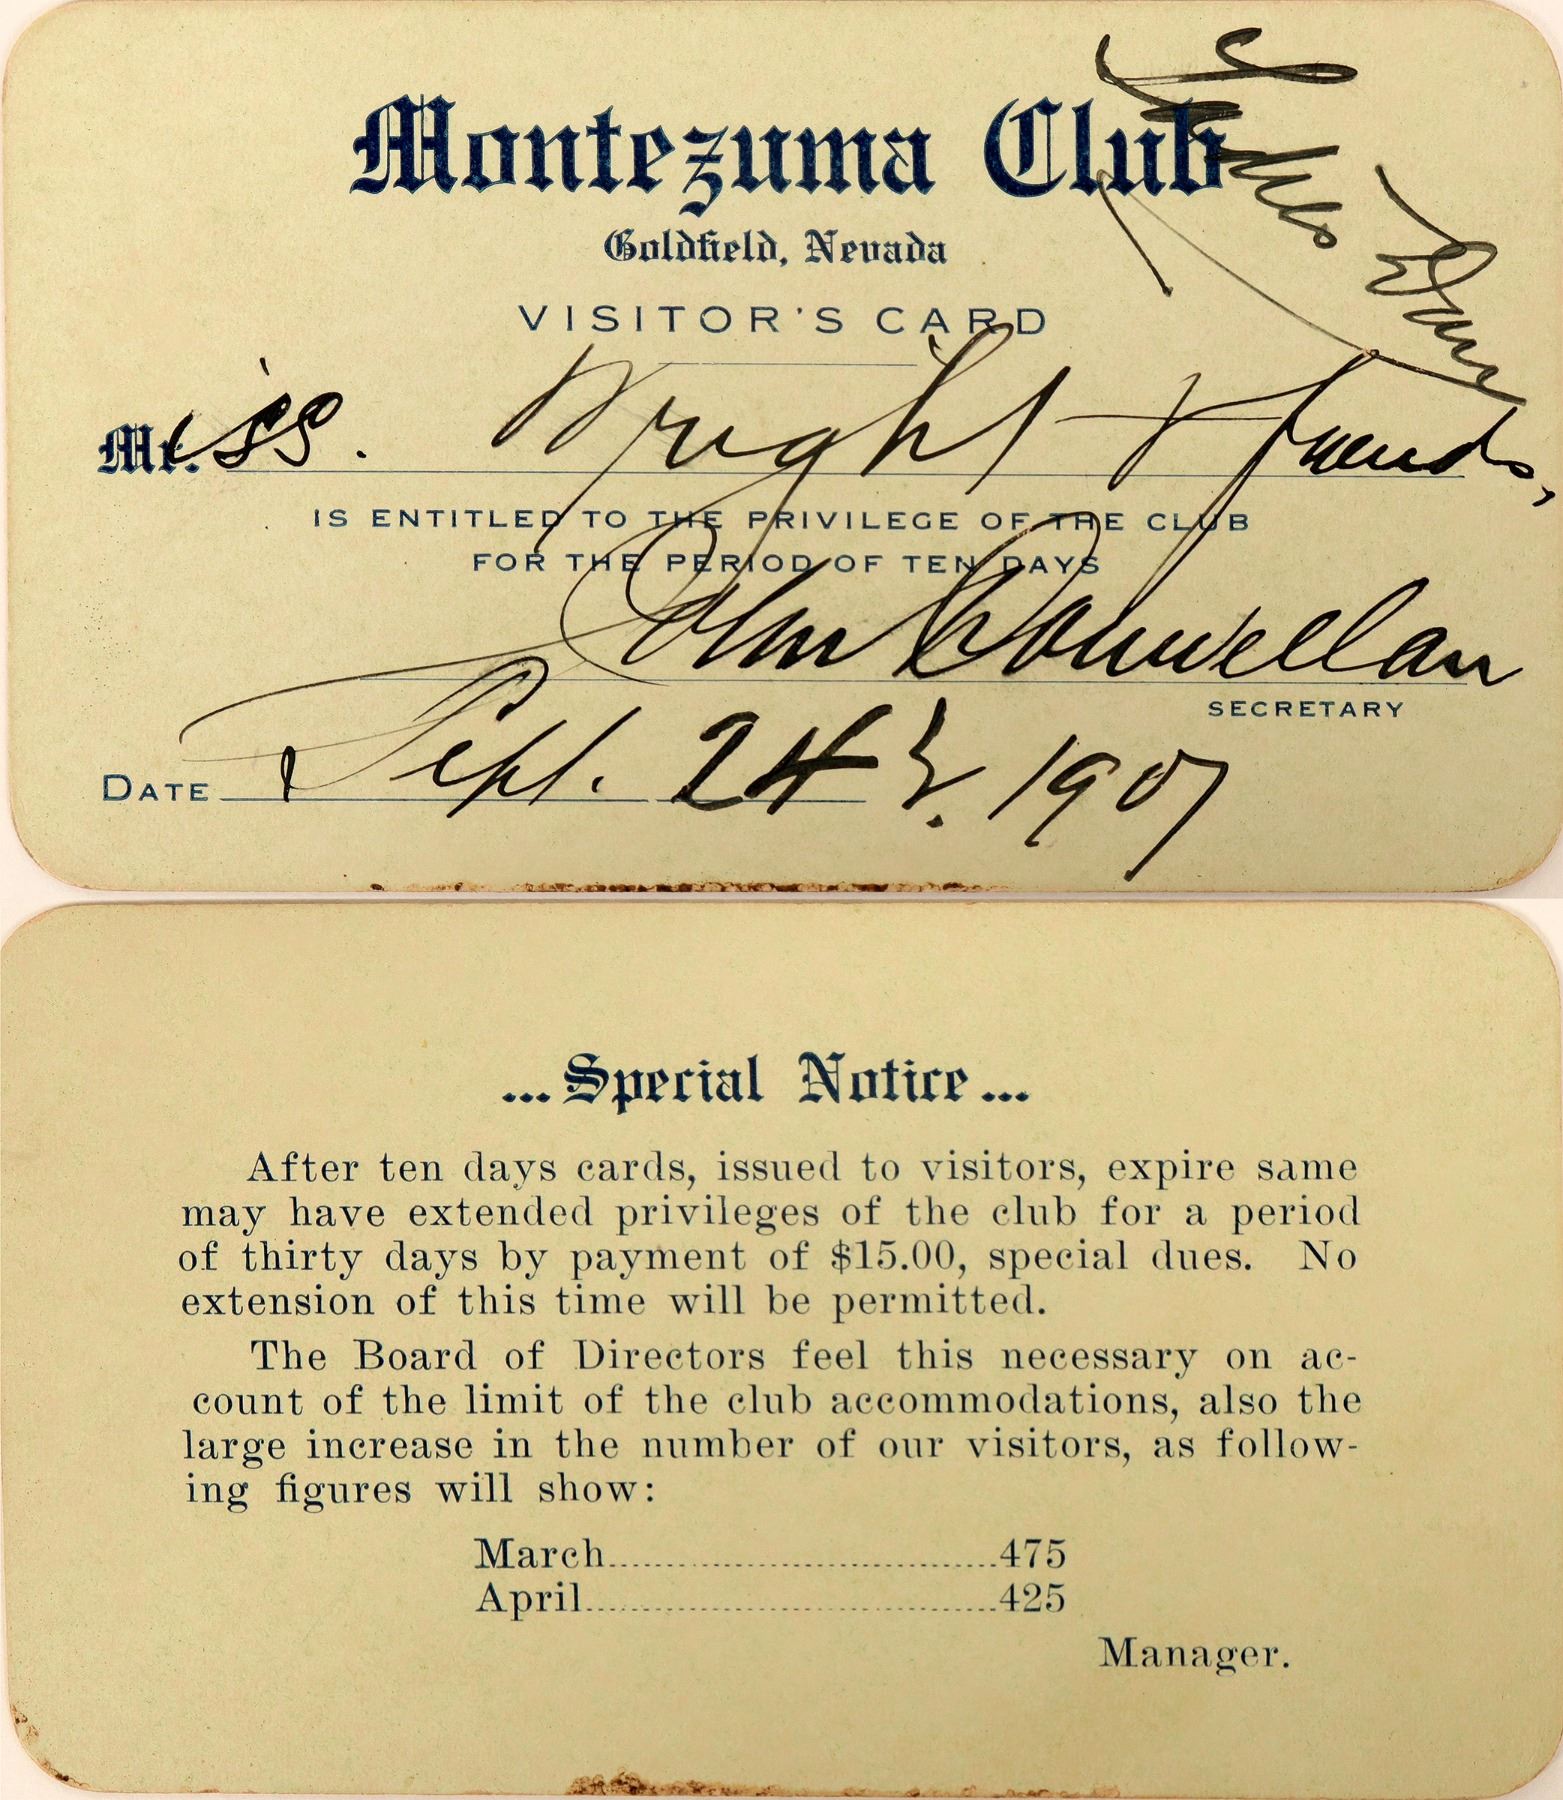 Montezuma Club
Goldfield, Nevada
VISITOR'S CARD
Ladies Day
Miss. Wright & friends,
IS ENTITLED TO THE PRIVILEGE OF THE CLUB
FOR THE PERIOD OF TEN DAYS
John
SECRETARY
DATE Sept. 24 1907
...Special Notice...
After ten days cards, issued to visitors, expire same
may have extended privileges of the club for a period
of thirty days by payment of $15.00, special dues. No
extension of this time will be permitted.
The Board of Directors feel this necessary on ac-
count of the limit of the club accommodations, also the
large increase in the number of our visitors, as follow-
ing figures will show:
March.......................................475
April.........................................425
Manager.